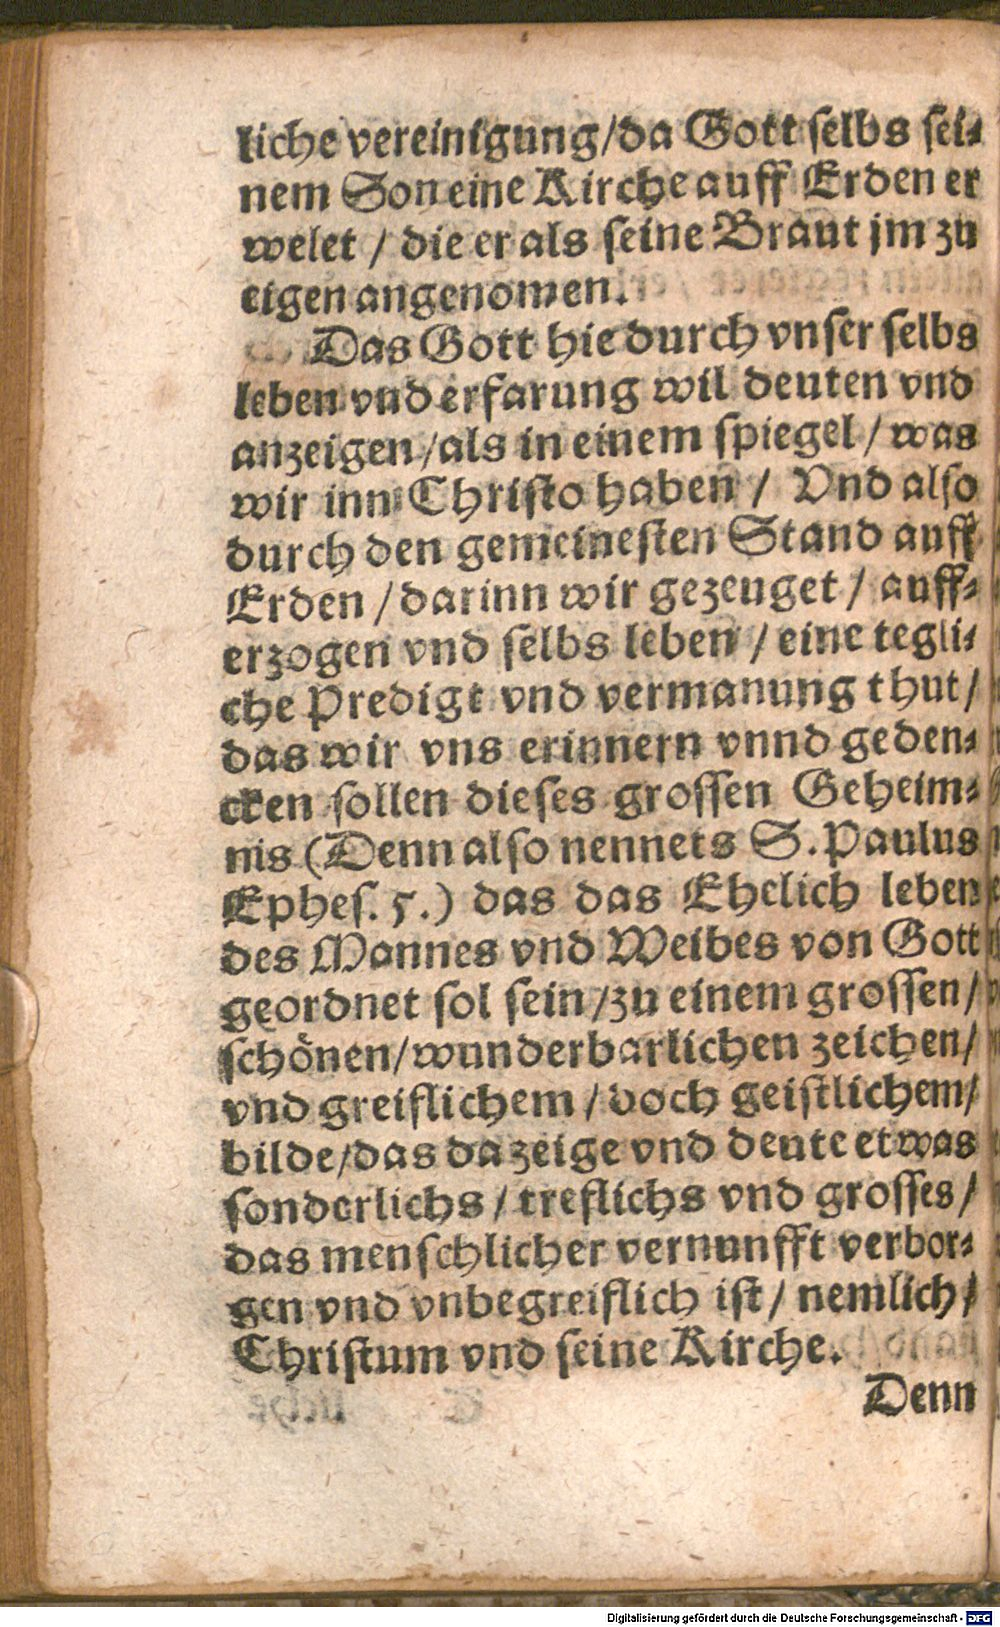 liche vereinigung/da Gott selbs sei⸗
nem Son eine Kirche auff Erden er
welet / die er als seine Braut jm zu
eigen angenomen.
Das Gott hie durch vnser selbs
leben vnd erfarung wil deuten vnd
anzeigen/als in einem spiegel / was
wir inn Christo haben / Vnd also
durch den gemeinesten Stand auff
Erden / darinn wir gezeuget / auff⸗
erzogen vnd selbs leben / eine tegli⸗
che Predigt vnd vermanung thut/
das wir vns erinnern vnnd geden⸗
cken sollen dieses grossen Geheim⸗
nis (Denn also nennets S. Paulus
Ephes. 5.) das das Ehelich leben
des Mannes vnd Weibes von Gott
geordnet sol sein/zu einem grossen/
schönen/wunderbarlichen zeichen/
vnd greiflichem / doch geistlichem/
bilde/das da zeige vnd deute etwas
sonderlichs / treflichs vnd grosses/
das menschlicher vernunfft verbor⸗
gen vnd vnbegreiflich ist / nemlich/
Christum vnd seine Kirche.
Denn
Digitalisierung gefördert durch die Deutsche Forschungsgemeinschaft - DFG